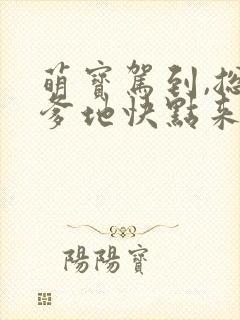 萌寶駕到,總
爹地快點來
陽陽寶